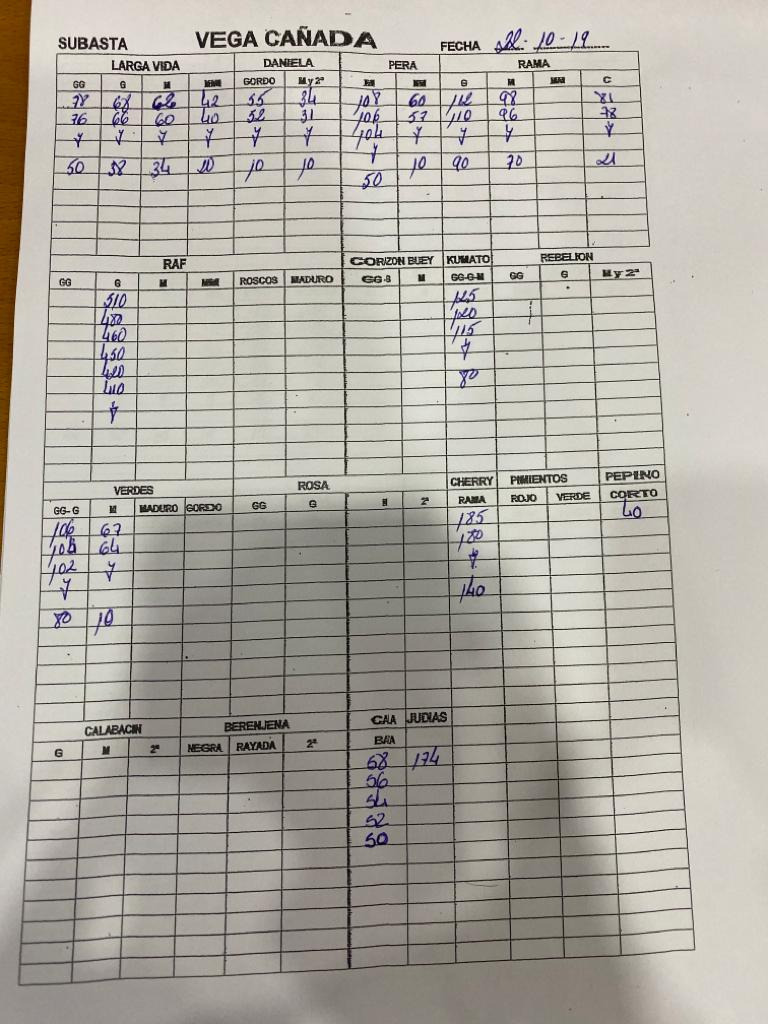 SUBASTA VEGA CAÑADA FECHA 28-10-19
LARGA VIDA DANIELA PERA RAMA
GG G M MM GORDO M y 2ª M MM G M MM C
78 68 62 42 55 34 108 60 112 98 81
76 66 60 40 52 31 106 57 110 96 78
y y y y y y 104 y y y y
y
50 38 34 20 10 10 50 10 90 70 21
RAF CORIZON BUEY KUMATO REBELION
GG G M MM ROSCOS MADURO GG-G M GG-G-M GG G M y 2ª
510 125
480 120
460 115
450 y
420 80
410
y
VERDES ROSA CHERRY PIMIENTOS PEPINO
GG-G M MADURO GORDO GG G M 2ª RAMA ROJO VERDE CORTO
106 67 185 40
104 64 180
102 y y
y 140
80 10
CALABACIN BERENJENA CAJA JUDIAS
G M 2ª NEGRA RAYADA 2ª BAJA
58 174
56
54
52
50